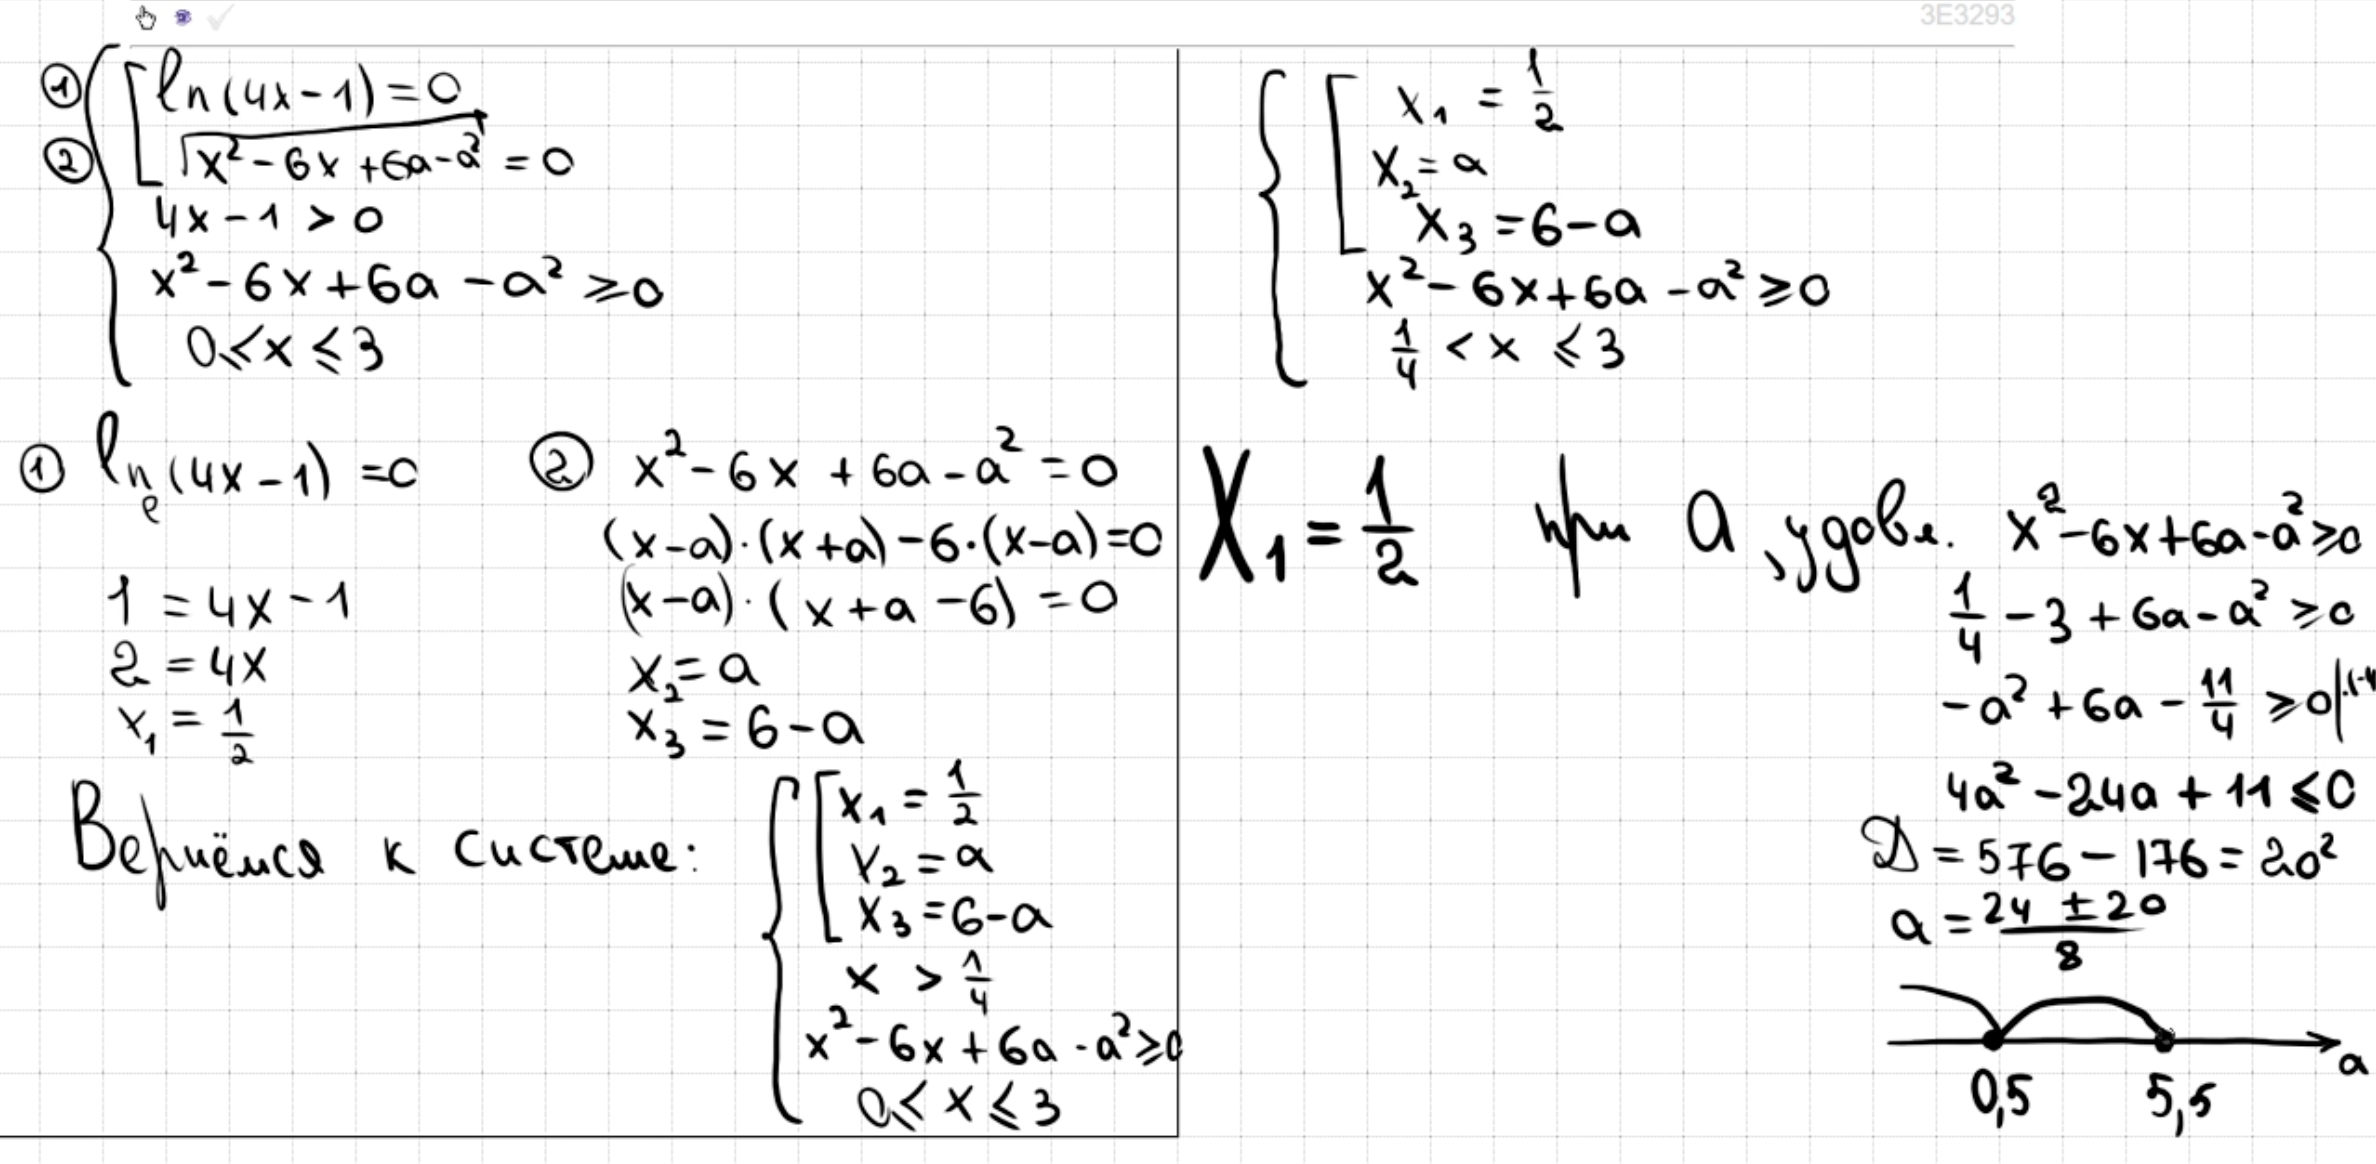 3E3293
① ln(4x-1)=0
② √(x²-6x+6a-a²)=0
4x-1>0
x²-6x+6a-a²⩾0
0⩽x⩽3
① lnₑ(4x-1)=0
1=4x-1
2=4x
x₁=1/2
② x²-6x+6a-a²=0
(x-a)·(x+a)-6·(x-a)=0
(x-a)·(x+a-6)=0
x₂=a
x₃=6-a
Вернёмся к системе:
x₁=1/2
x₂=a
x₃=6-a
x>1/4
x²-6x+6a-a²⩾0
0⩽x⩽3
x₁=1/2
x₂=a
x₃=6-a
x²-6x+6a-a²⩾0
1/4<x⩽3
X₁=1/2 при a, удовл. x²-6x+6a-a²⩾0
1/4-3+6a-a²⩾0
-a²+6a-11/4⩾0|·(-4
4a²-24a+11⩽0
D=576-176=20²
a=(24±20)/8
a
0,5 5,5